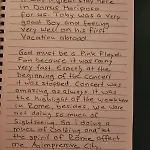 in Danas Mariposa
for us. Toby was a very
good boy and feeling
very well on his first
Vacation abroad.
God must be a Pink Floyd
Fan because it was rainy
very fast. Exactly at the
beginning of the concert
it was stopped. Concert was
amazing as always. It was
the highlight of the weekend
in Rome, besides, we were
not doing so much of
Sightseeing. So it was a
much of and let
the spirit of Rome, affect
me